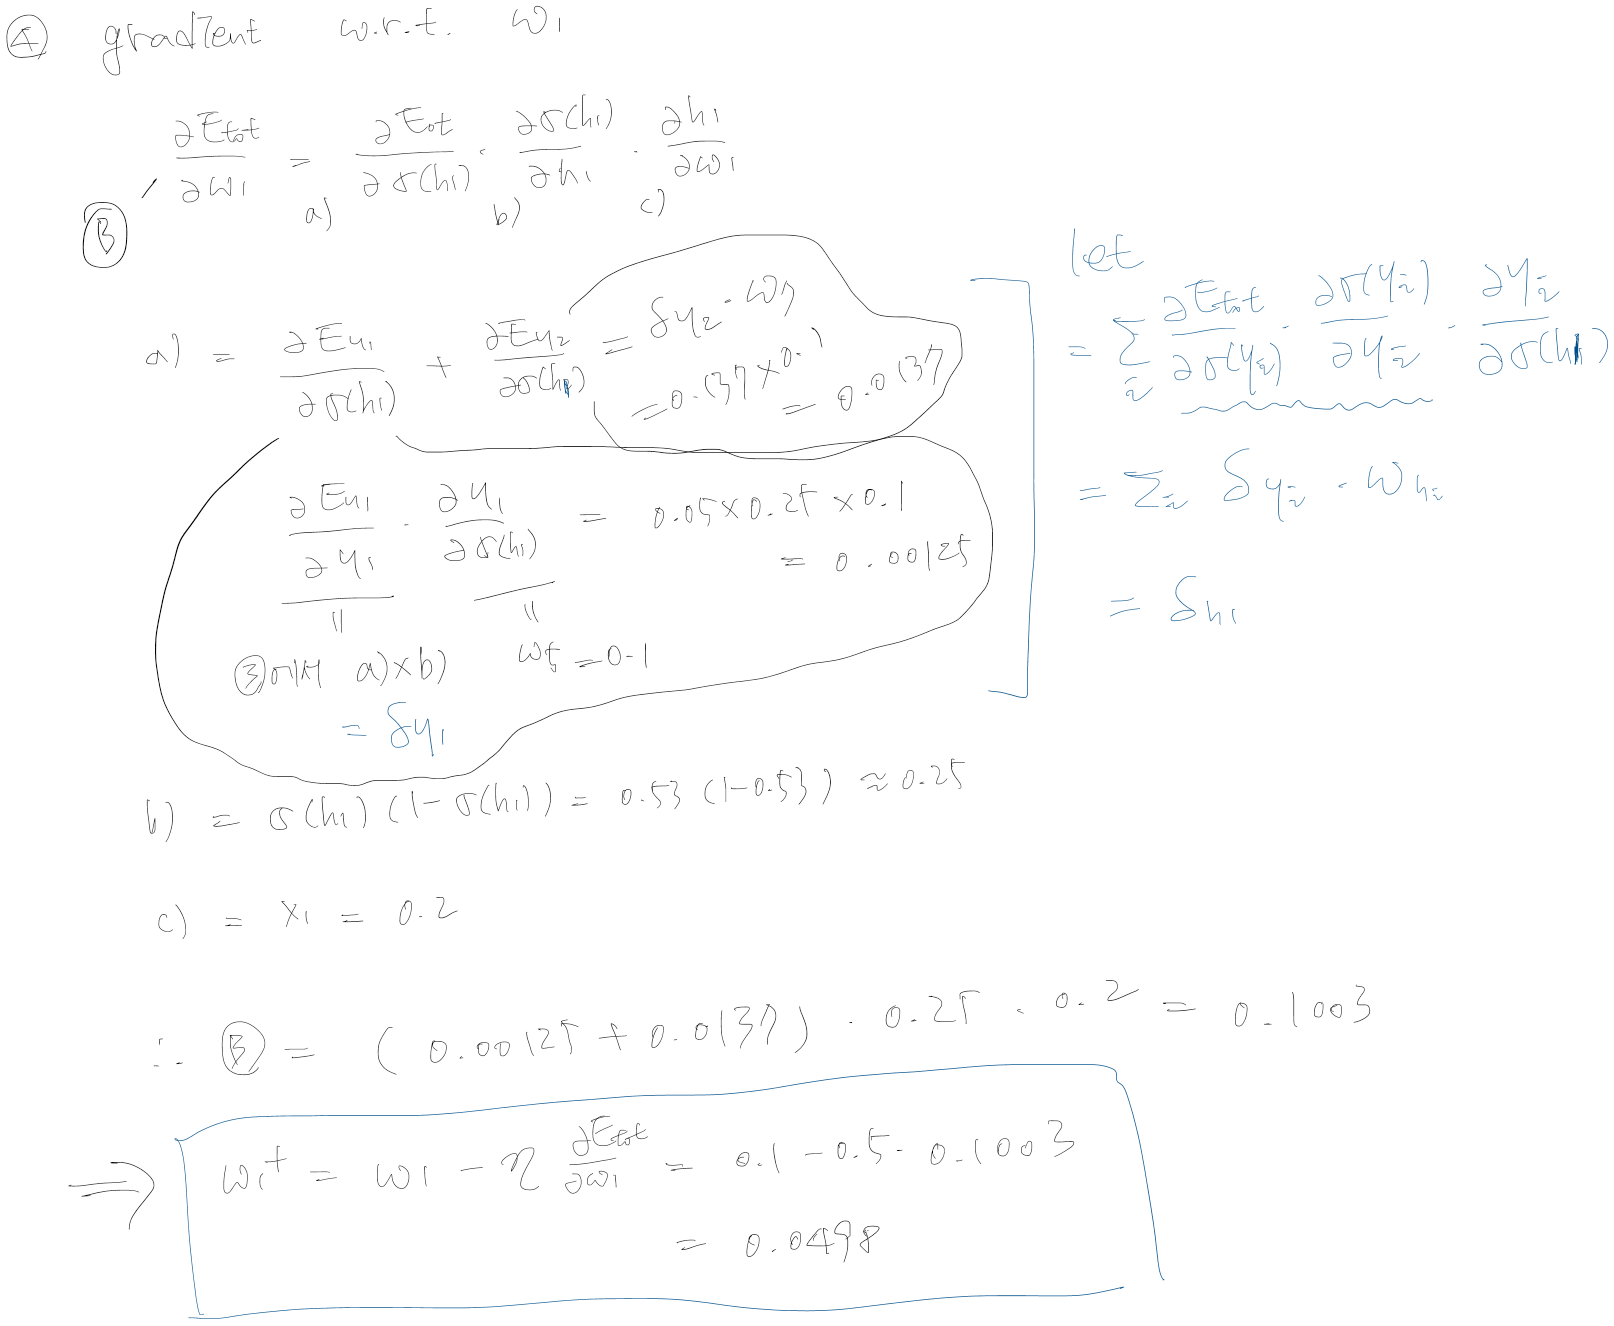 ④ gradient w.r.t. w₁
∂Etot/∂w₁ = ∂Etot/∂σ(h₁) · ∂σ(h₁)/∂h₁ · ∂h₁/∂w₁
Ⓑ a) b) c)
a) = ∂Ey₁/∂σ(h₁) + ∂Ey₂/∂σ(h₁) = δy₂ · w₇
= 0.137 × 0.1 = 0.0137
∂Ey₁/∂y₁ · ∂y₁/∂σ(h₁) = 0.05 × 0.25 × 0.1
= 0.00125
③에서 a)×b) w₅ = 0.1
= δy₁
let
= Σᵢ ∂Etot/∂σ(yᵢ) · ∂σ(yᵢ)/∂yᵢ · ∂yᵢ/∂σ(h₁)
= Σᵢ δyᵢ · w hᵢ
= δh₁
b) = σ(h₁)(1-σ(h₁)) = 0.53 (1-0.53) ≈ 0.25
c) = x₁ = 0.2
∴ Ⓑ = (0.00125 + 0.0137) · 0.25 · 0.2 = 0.1003
⇒ w₁⁺ = w₁ - η ∂Etot/∂w₁ = 0.1 - 0.5 · 0.1003
= 0.0498